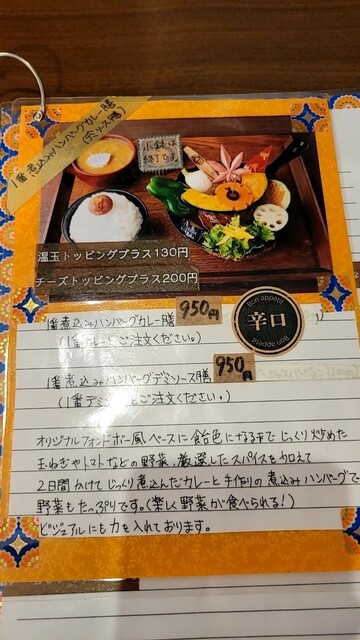 1番煮込みハンバーグカレー膳
(デミソース膳)
小鉢は
終了です。
温玉トッピングプラス130円
チーズトッピングプラス200円
950円
Bon appétit
辛口
Bon appétit
1番煮込みハンバーグカレー膳
(1番カレーとご注文ください。)
950円
1番煮込みハンバーグデミソース膳
(1番デミとご注文ください。)
オリジナルフォンドボー風ベースに飴色になるまでじっくり炒めた
玉ねぎやトマトなどの野菜、厳選したスパイスを加えて
2日間かけてじっくり煮込んだカレーと手作りの煮込みハンバーグで
野菜もたっぷりです。(楽しく野菜が食べられる!)
ビジュアルにも力を入れております。